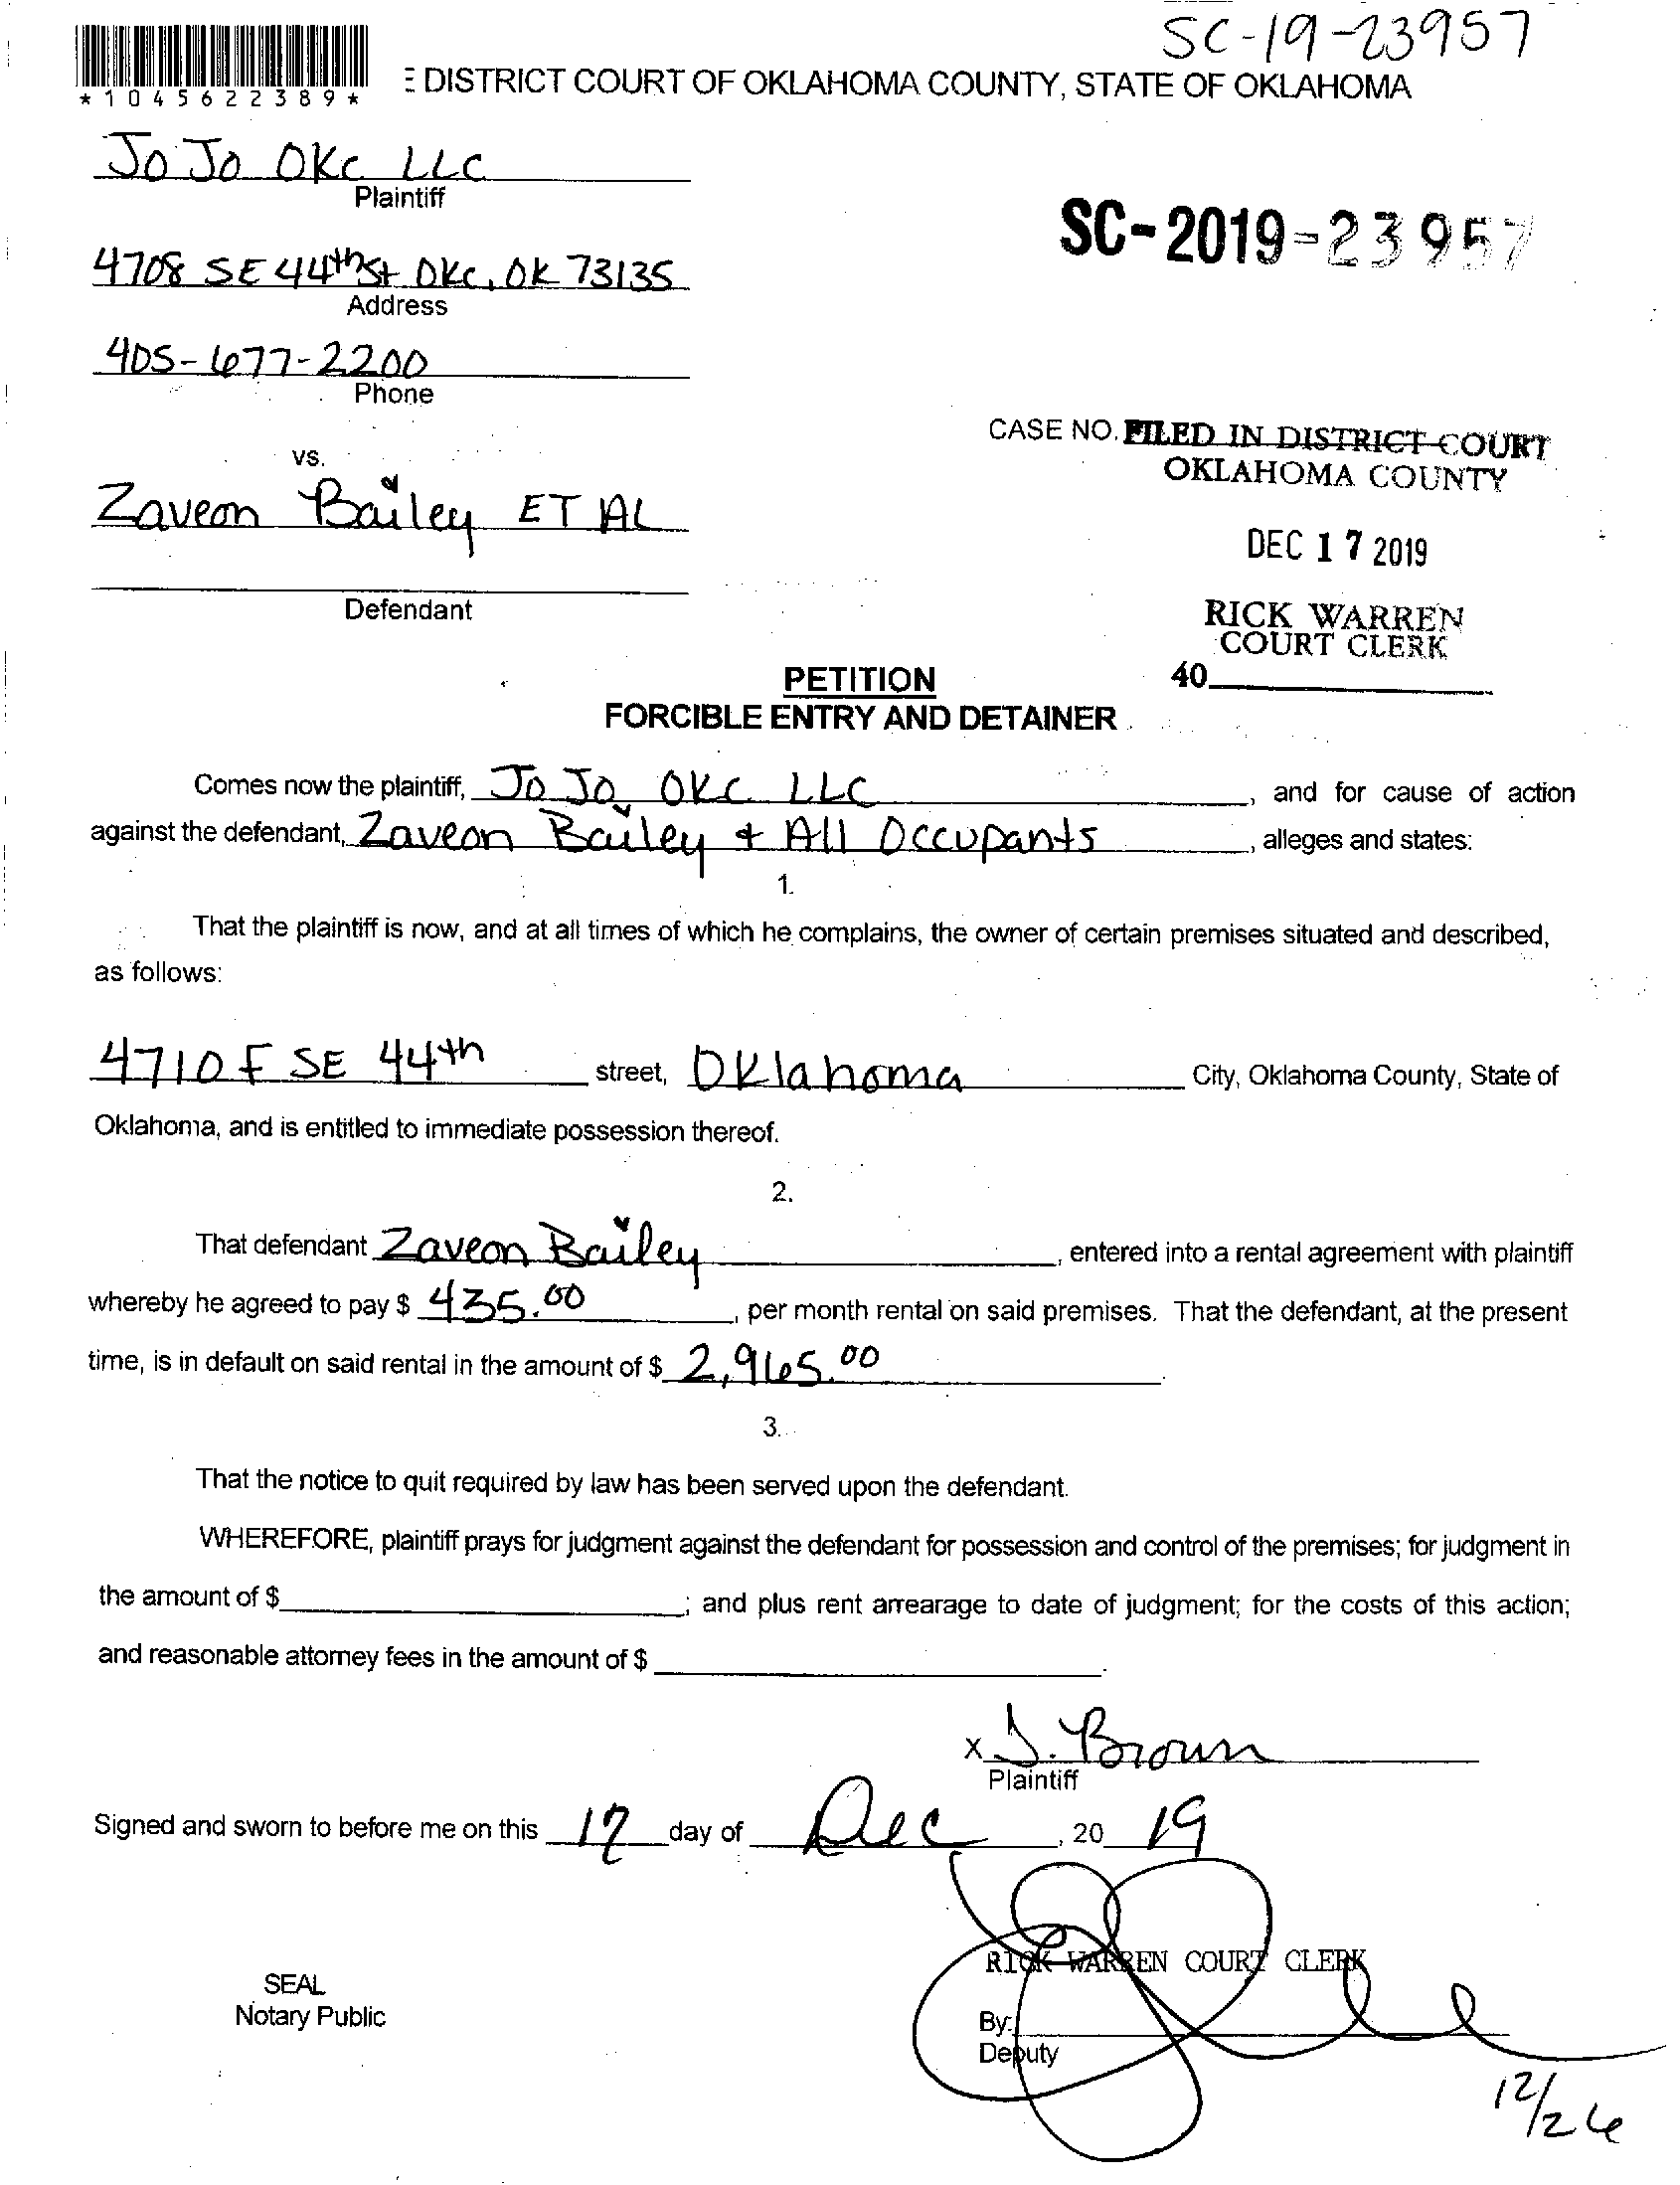 SC-19-23957
*1045622389*
DISTRICT COURT OF OKLAHOMA COUNTY, STATE OF OKLAHOMA
Jo Jo OKC LLC
Plaintiff
SC-2019-23957
4708 SE 44th St OKC, OK 73135
Address
405-677-2200
Phone
CASE NO. FILED IN DISTRICT COURT
OKLAHOMA COUNTY
vs.
Zaveon Bailey ET AL
DEC 17 2019
Defendant
RICK WARREN
COURT CLERK
40
PETITION
FORCIBLE ENTRY AND DETAINER
Comes now the plaintiff, Jo Jo OKC LLC, and for cause of action
against the defendant, Zaveon Bailey + All Occupants, alleges and states:
1.
That the plaintiff is now, and at all times of which he complains, the owner of certain premises situated and described,
as follows:
4710 F SE 44th street, Oklahoma City, Oklahoma County, State of
Oklahoma, and is entitled to immediate possession thereof.
2.
That defendant Zaveon Bailey, entered into a rental agreement with plaintiff
whereby he agreed to pay $ 435.00, per month rental on said premises. That the defendant, at the present
time, is in default on said rental in the amount of $ 2,965.00.
3.
That the notice to quit required by law has been served upon the defendant.
WHEREFORE, plaintiff prays for judgment against the defendant for possession and control of the premises; for judgment in
the amount of $ ; and plus rent arrearage to date of judgment; for the costs of this action;
and reasonable attorney fees in the amount of $ .
X J. Brown
Plaintiff
Signed and sworn to before me on this 17 day of Dec, 20 19
RICK WARREN COURT CLERK
SEAL
Notary Public
By:
Deputy
12/26